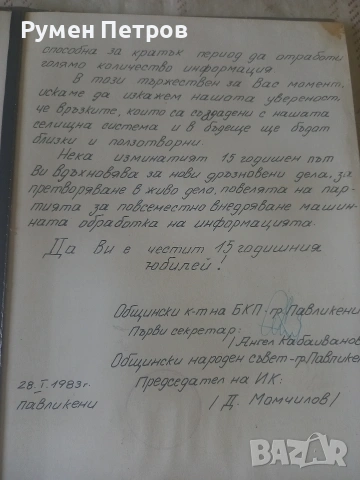 Румен Петров
способна за кратък период да отработи
голямо количество информация
В този тържествен за Вас момент,
искаме да изкажем нашата увереност,
че връзките, които са създадени с нашата
селищна система и в бъдеще ще бъдат
близки и ползотворни.
Нека изминатият 15 годишен път
Ви вдъхновява за нови дръзновени дела, за
претворяване в живо дело, повелята на пар-
тията за повсеместно внедряване машин-
ната обработка на информацията.
Да Ви е честит 15 годишния
юбилей!
Общински к-т на БКП-гр. Павликени
Първи секретар:
/Ангел Кабаиванов
Общински народен съвет-гр. Павлике
28.I.1983г. Председател на И.К:
Павликени /Д. Момчилов/
BAZAR